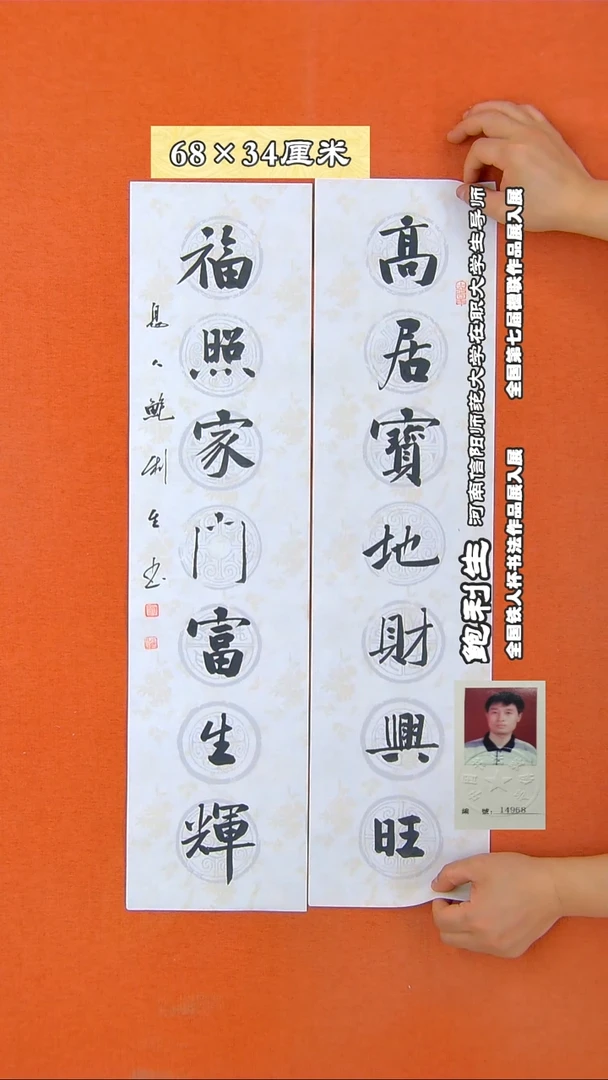 68×34厘米
高居寳地財興旺
福照家门富生輝
息人鲍利生书
鲍利生 河南信阳师范大学在职大学生导师
全国第七届楹联作品展入展
全国铁人杯书法作品展入展
編 號：14968